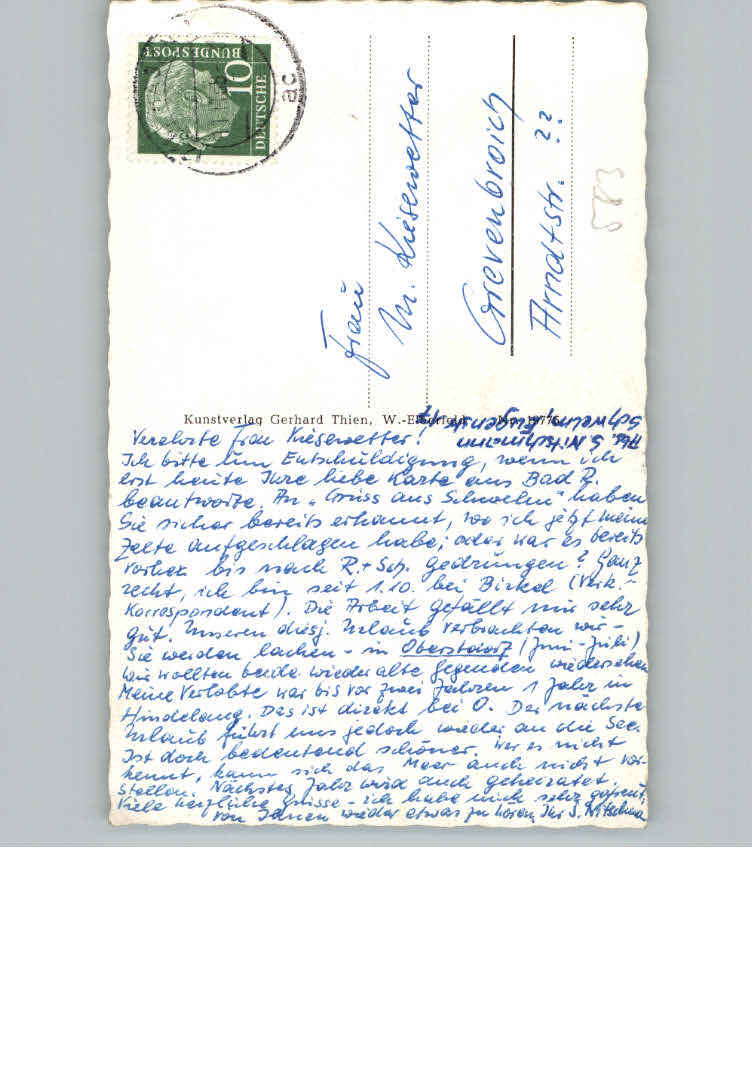 DEUTSCHE
BUNDESPOST
10
ac
Frau
M. Kiesewetter
Grevenbroich
Arndtstr. 22
583
Kunstverlag Gerhard Thien, W.-Elberfeld
Abs. S. Nitschmann
Schwelm,
Verehrte Frau Kiesewetter!
Ich bitte um Entschuldigung, wenn ich
erst heute Ihre liebe Karte aus Bad R.
beantworte. An „Gruss aus Schwelm" haben
Sie sicher bereits erkannt, wo ich jetzt meine
Zelte aufgeschlagen habe; oder war es bereits
vorher bis nach R. + Sch. gedrungen? Ganz
recht, ich bin seit 1.10. bei Birkel (Verk.-
Korrespondent). Die Arbeit gefällt mir sehr
gut. Unseren diesj. Urlaub verbrachten wir -
Sie werden lachen - in Oberstdorf (Juni-Juli)
Wir wollten beide wieder alte Gegenden wiedersehen
Meine Verlobte war bis vor zwei Jahren 1 Jahr in
Hindelang. Das ist direkt bei O. Der nächste
Urlaub führt uns jedoch wieder an die See.
Ist doch bedeutend schöner. Wer es nicht
kennt, kann sich das Meer auch nicht vor-
stellen. Nächstes Jahr wird auch geheiratet.
Viele herzliche Grüsse - ich habe mich sehr gefreut,
von Ihnen wieder etwas zu hören, Ihr S. Nitschma